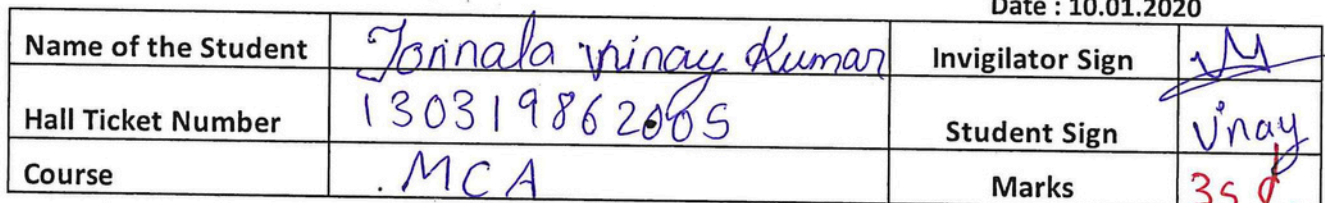 Date : 10.01.2020
Name of the Student Jorinala vinay Kumar Invigilator Sign
Hall Ticket Number 130319862005 Student Sign Vinay
Course . MCA Marks 35